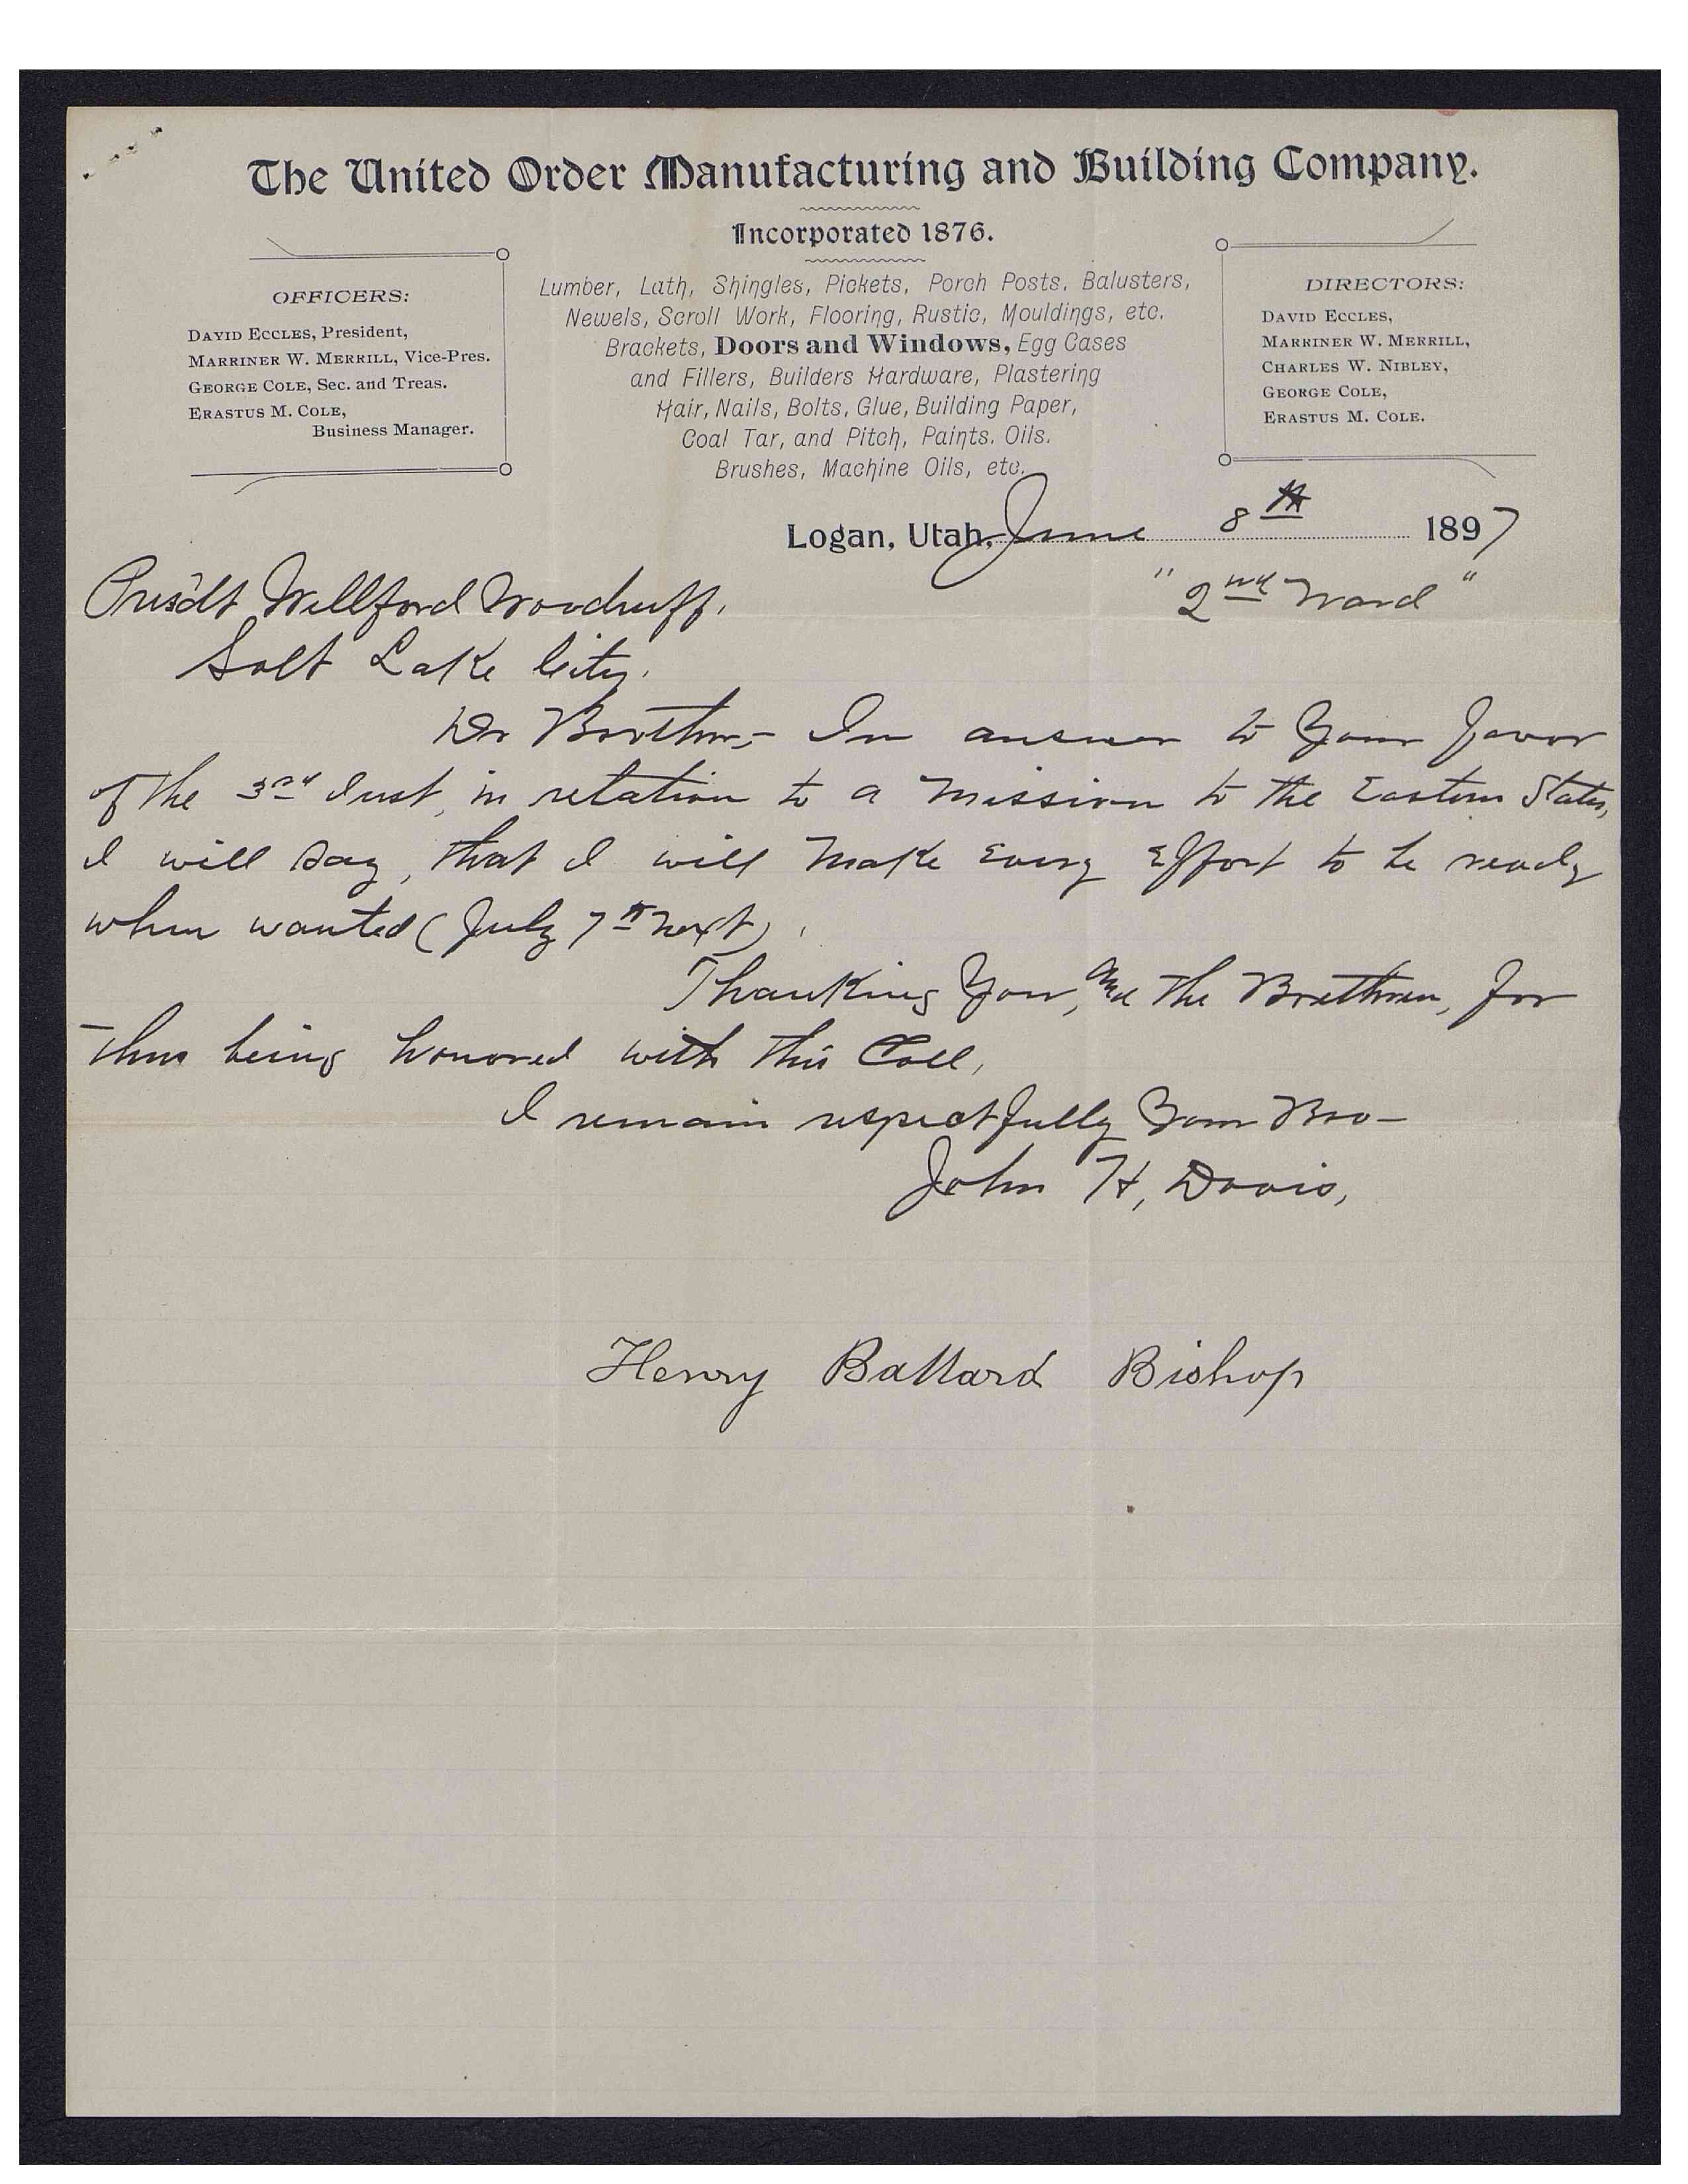 The United Order Manufacturing and Building Company.
Incorporated 1876.
OFFICERS:
DAVID ECCLES, President,
MARRINER W. MERRILL, Vice-Pres.
GEORGE COLE, Sec. and Treas.
ERASTUS M. COLE,
Business Manager.
Lumber, Lath, Shingles, Pickets, Porch Posts, Balusters,
Newels, Scroll Work, Flooring, Rustic, Mouldings, etc.
Brackets, Doors and Windows, Egg Cases
and Fillers, Builders Hardware, Plastering
Hair, Nails, Bolts, Glue, Building Paper,
Coal Tar, and Pitch, Paints, Oils,
Brushes, Machine Oils, etc.
DIRECTORS:
DAVID ECCLES,
MARRINER W. MERRILL,
CHARLES W. NIBLEY,
GEORGE COLE,
ERASTUS M. COLE.
Logan, Utah, June 8th 1897
"2nd Ward"
Presdt Willford Woodruff,
Salt Lake City.
Dr Brother,- In answer to Your favor
of the 3rd Inst, in relation to a Mission to the Eastern States,
I will say, that I will Make Every Effort to be ready
when wanted (July 7th next).
Thanking You, and the Brethren, for
thus being honored with this Call,
I remain respectfully Your Bro-
John H, Davis,
Henry Ballard Bishop